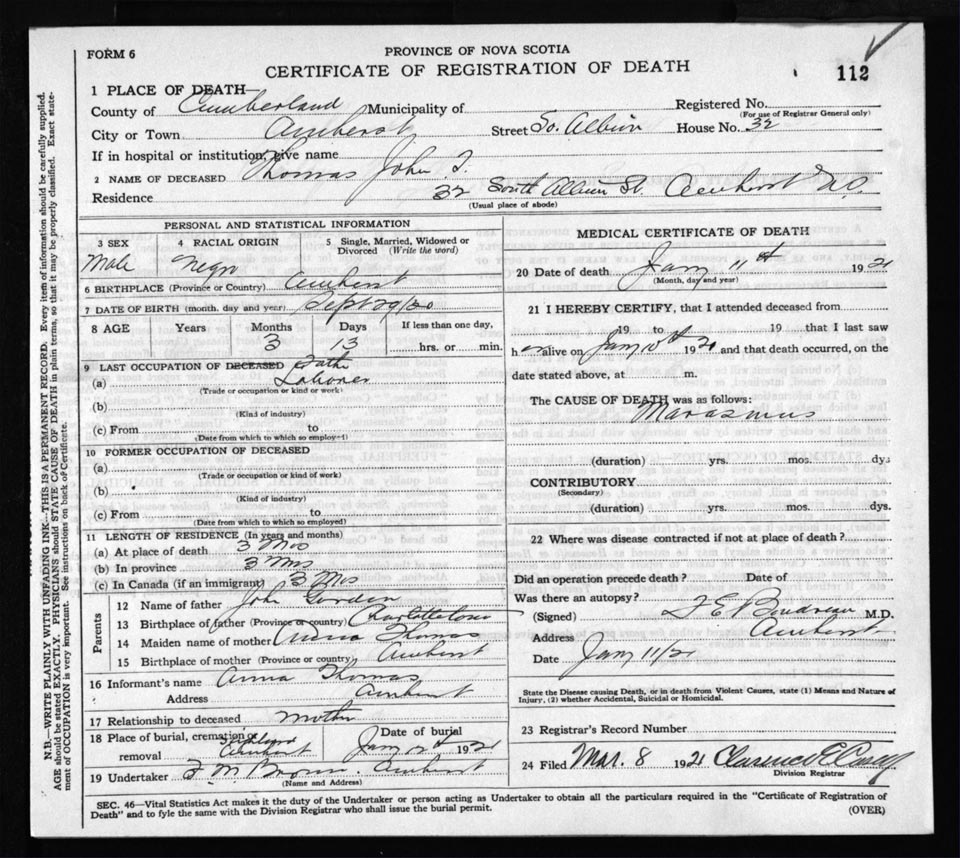 FORM 6
PROVINCE OF NOVA SCOTIA
CERTIFICATE OF REGISTRATION OF DEATH
112
1 PLACE OF DEATH—
County of Cumberland Municipality of Registered No.
(For use of Registrar General only)
City or Town Amherst Street So. Albion House No. 32
If in hospital or institution, give name
2 NAME OF DECEASED Thomas John T.
Residence 32 South Albion St. Amherst N.S.
(Usual place of abode)
PERSONAL AND STATISTICAL INFORMATION
3 SEX 4 RACIAL ORIGIN 5 Single, Married, Widowed or Divorced (Write the word)
Male Negro
6 BIRTHPLACE (Province or Country) Amherst
7 DATE OF BIRTH (month, day and year) Sept 29/20
8 AGE Years Months Days If less than one day,
3 13 hrs. or min.
9 LAST OCCUPATION OF DECEASED Father
(a) Laborer
(Trade or occupation or kind of work)
(b)
(Kind of industry)
(c) From to
(Date from which to which so employed)
10 FORMER OCCUPATION OF DECEASED
(a)
(Trade or occupation or kind of work)
(b)
(Kind of industry)
(c) From to
(Date from which to which so employed)
11 LENGTH OF RESIDENCE (In years and months)
(a) At place of death 3 Mos
(b) In province 3 Mos
(c) In Canada (if an immigrant) 3 Mos
Parents
12 Name of father John Gordon
13 Birthplace of father (Province or country) Charlottetown
14 Maiden name of mother Anna Thomas
15 Birthplace of mother (Province or country) Amherst
16 Informant's name Anna Thomas
Address Amherst
17 Relationship to deceased mother
18 Place of burial, cremation or removal Amherst Date of burial Jany 12th 1921
19 Undertaker F M Brown Amherst
(Name and Address)
MEDICAL CERTIFICATE OF DEATH
20 Date of death Jany 11th 1921
(Month, day and year)
21 I HEREBY CERTIFY, that I attended deceased from
19 to 19 that I last saw
h er alive on Jany 10th 1921 and that death occurred, on the
date stated above, at m.
The CAUSE OF DEATH was as follows:
Marasmus
(duration) yrs. mos. dys
CONTRIBUTORY
(Secondary)
(duration) yrs. mos. dys.
22 Where was disease contracted if not at place of death?
Did an operation precede death? Date of
Was there an autopsy?
(Signed) F E Boudreau M.D.
Address Amherst
Date Jany 11/21
State the Disease causing Death, or in death from Violent Causes, state (1) Means and Nature of
Injury, (2) whether Accidental, Suicidal or Homicidal.
23 Registrar's Record Number
24 Filed Mar. 8 1921 Clarence E Casey
Division Registrar
SEC. 46—Vital Statistics Act makes it the duty of the Undertaker or person acting as Undertaker to obtain all the particulars required in the "Certificate of Registration of
Death" and to fyle the same with the Division Registrar who shall issue the burial permit.
(OVER)
N.B.—WRITE PLAINLY WITH UNFADING INK—THIS IS A PERMANENT RECORD. Every item of information should be carefully supplied.
AGE should be stated EXACTLY. PHYSICIANS should STATE CAUSE OF DEATH in plain terms, so that it may be properly classified. Exact statement of OCCUPATION is very important. See instructions on back of Certificate.